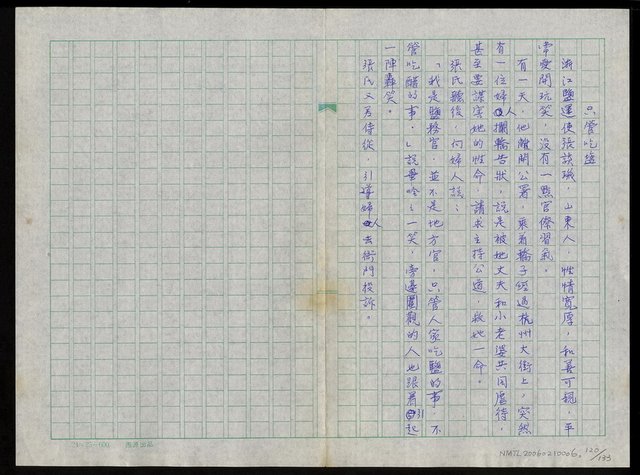 只管吃鹽
浙江鹽運使張談璣，山東人，性情寬厚，和善可親，平
常愛開玩笑，沒有一點官僚習氣。
有一天，他離開公署，乘着轎子經過杭州大街上，突然
有一位婦人攔轎告狀，說是被她丈夫和小老婆共同虐待，
甚至要謀害她的性命，請求主持公道，救她一命。
張氏聽後，向婦人說：
「我是鹽務官，並不是地方官，只管人家吃鹽的事，不
管吃醋的事。」說畢哈哈一笑，旁邊圍觀的人也跟着引起
一陣轟笑。
張氏又着侍從，引導婦人去衙門投訴。
24×25=600
NMTL20060210006
120/133